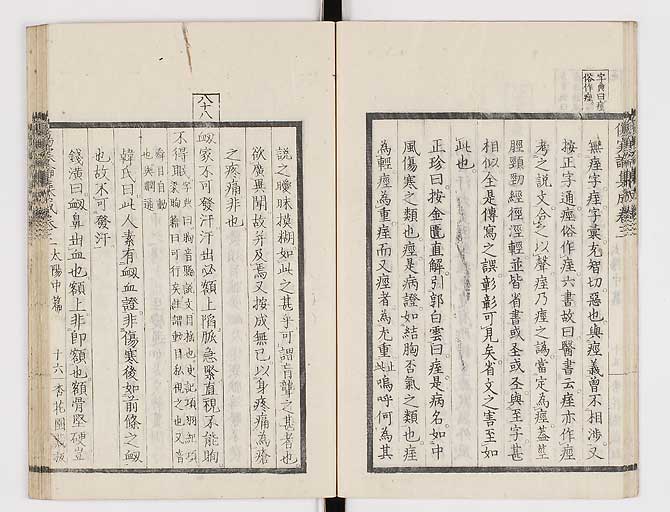 字典曰痓
俗作痙
無痓字痓字彙充智切惡也與痙義曾不相涉又
按正字通痙俗作痓六書故曰醫書云痓亦作痙
考之說文合之以聲痓乃痙之譌當定為痙蓋
脛頸勁經徑涇輕並皆省書或圣或圣與至字甚
相似全是傳寫之誤彰彰可見矣省文之害至如
此也
正珍曰按金匱直解引郭白雲曰痓是病名如中
風傷寒之類也痙是病證如結胸否氣之類也痓
為輕痙為重痓而又痙者為尤重止此嗚呼何為其
說之曖昧摸糊如此之甚乎可謂盲聾之甚者也
欲廣異聞故并及焉又按成無已以身疼痛為瘡
之疼痛非也
八十八
衂家不可發汗汗出必額上陷脈急緊直視不能眴
不得眠
韓氏曰此人素有衂血證非傷寒後如前條之衂
也故不可發汗
錢潢曰衂鼻出血也額上非即額也額骨堅硬豈
太陽中篇
十六
杏花園